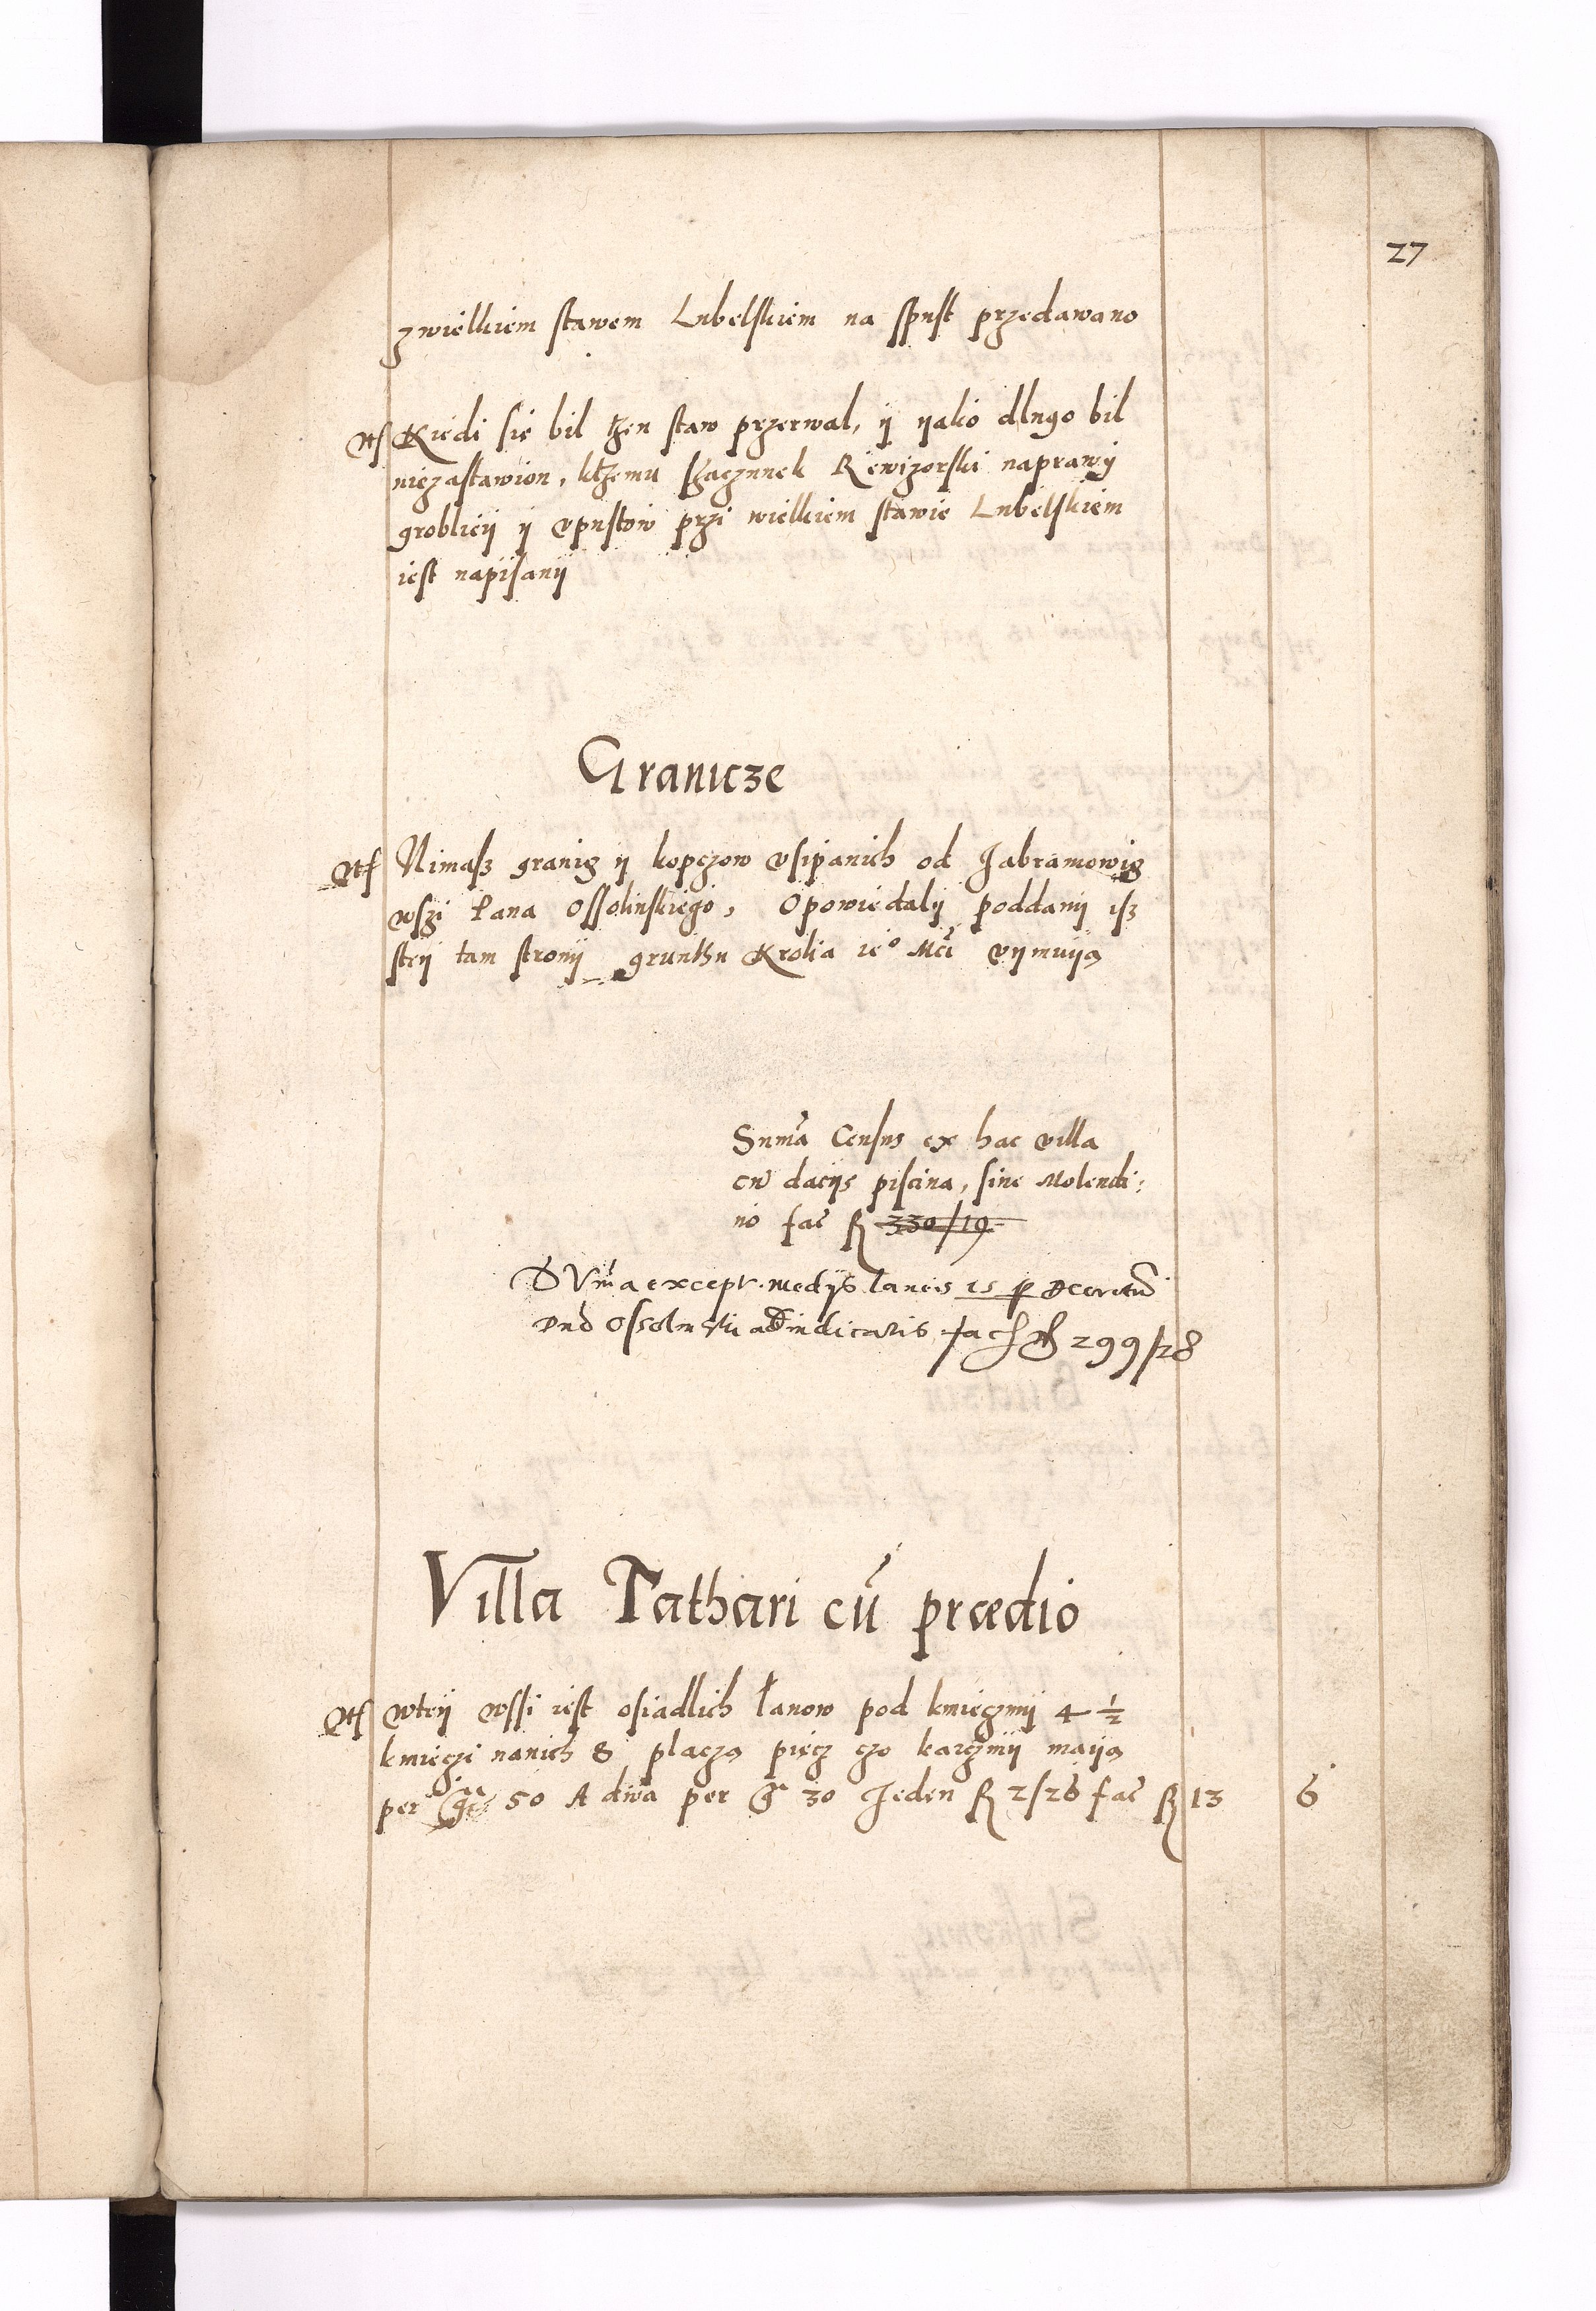 27
zwielkiem stawem Lubelskiem na spust przedawano
Kiedi sie bil then staw przerwal, ÿ ÿako dlugo bil
niezastawion, kthemu szaczunek Rewizorski naprawÿ
grobliciÿ ÿ vpustow przi wielkiem stawie Lubelskiem
iest napisanÿ
Granicze
Nimasz graniz ÿ kopczow vsipanich od Jabramowiz
wszi Pana Ossolinskiego, Opowiedalÿ poddanÿ isz
steÿ tam stronÿ grunthu Krolia ieº Mci vÿmuÿą
Suma Census ex hac villa
cu daciis piscina, sine Molendi:
no fac 330/19
Suma except. medijs laneis 15 p Decretu
Dno Ossolinski adiudicatis fac 299/28
Villa Tathari cū prædio
wteÿ wssi iest osiadlich łanow pod kmieczmÿ 4 ½
kmieczi nanich 8 placzą piecz czo karczmÿ maÿą
per gr 50 A dwa per gr 30 Jeden 2/26 fac 13 6